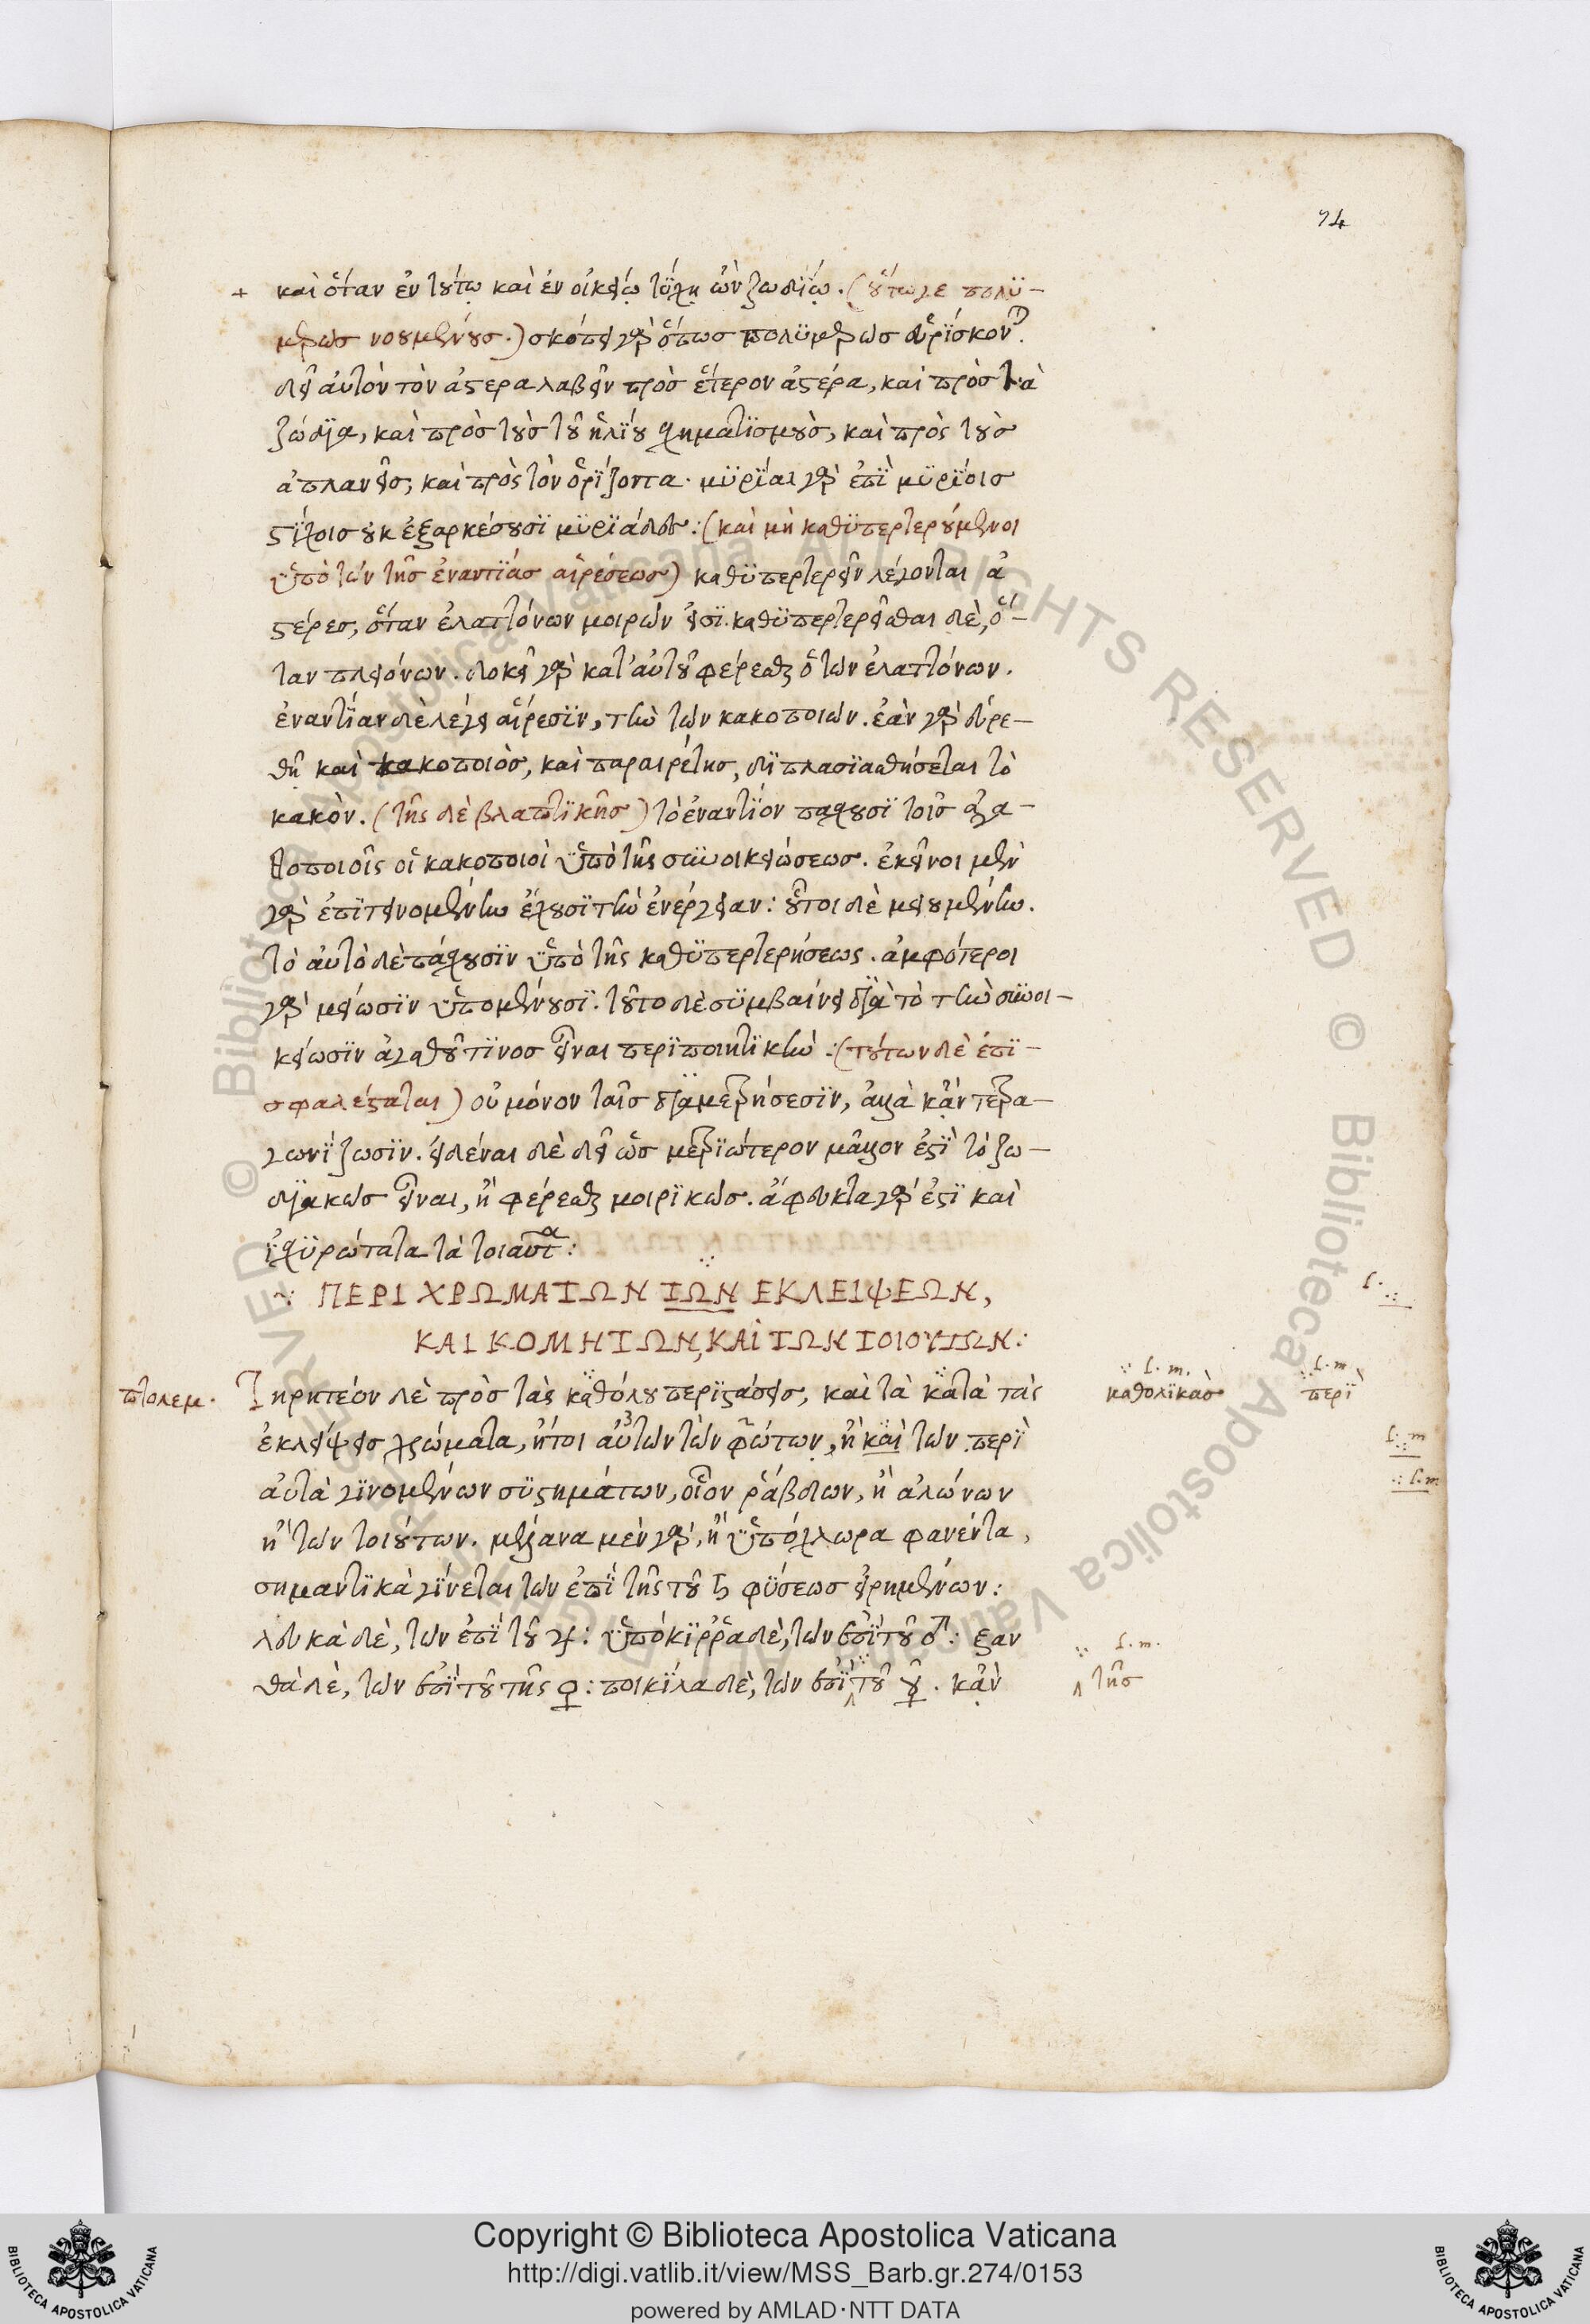 74
+ καὶ ὅταν ἐν τούτῳ καὶ ἐν οἰκείῳ τύχῃ ὢν ζωδίῳ. (οὕτωγε πολυ-
μερῶς νοουμένους.) σκόπει γὰρ ὅπως πολυμερῶς εὑρίσκον
δεῖ αὐτὸν τὸν ἀστέρα λαβεῖν πρὸς ἕτερον ἀστέρα, καὶ πρὸς τὰ
ζώδια, καὶ πρὸς τοὺς τοῦ ἡλίου σχηματισμοὺς, καὶ πρὸς τοὺς
ἀπλανεῖς, καὶ πρὸς τὸν ὁρίζοντα. μυρίαι γὰρ ἐπὶ μυρίοις
στίχοις οὐκ ἐξαρκέσουσι μυριάδες: (καὶ μὴ καθυπερτερούμενοι
ὑπὸ τῶν τῆς ἐναντίας αἱρέσεως) καθυπερτερεῖν λέγονται ἀ
στέρες, ὅταν ἐλαττόνων μοιρῶν εἰσί. καθυπερτερεῖσθαι δὲ, ὅ-
ταν πλειόνων. δοκεῖ γὰρ κατ' αὐτοῦ φέρεσθαι ὁ τῶν ἐλαττόνων.
ἐναντίαν δὲ λέγει αἵρεσιν, τὴν τῶν κακοποιῶν. ἐὰν γὰρ εὑρε-
θῇ καὶ κακοποιὸς, καὶ παραιρέτης, διπλασιασθήσεται τὸ
κακὸν. (τῆς δὲ βλαπτικῆς) τὸ ἐναντίον πάσχουσι τοῖς ἀγα-
θοποιοῖς οἱ κακοποιοὶ ὑπὸ τῆς συνοικειώσεως. ἐκεῖνοι μὲν
γὰρ ἐπιτεινομένην ἔχουσι τὴν ἐνέργειαν: οὗτοι δὲ μειουμένην.
τὸ αὐτὸ δὲ πάσχουσιν ὑπὸ τῆς καθυπερτερήσεως. ἀμφότεροι
γὰρ μείωσιν ὑπομένουσι. τοῦτο δὲ συμβαίνει διὰ τὸ τὴν συνοι-
κείωσιν ἀγαθοῦ τινος εἶναι περιποιητικὴν: (τούτων δὲ ἐπι-
σφαλέσταται) οὐ μόνον ταῖς διαμετρήσεσιν, ἀλλὰ κἂν τετρα-
γωνίζωσιν. εἰδέναι δὲ δεῖ ὡς μετριώτερον μᾶλλον ἐστὶ τὸ ζω-
διακῶς εἶναι, ἢ φέρεσθαι μοιρικῶς. ἄφυκτα γὰρ ἐστὶ καὶ
ἰσχυρώτατα τὰ τοιαῦτα:
ΠΕΡΙ ΧΡΩΜΑΤΩΝ ΤΩΝ ΕΚΛΕΙΨΕΩΝ,
ΚΑΙ ΚΟΜΗΤΩΝ, ΚΑΙ ΤΩΝ ΤΟΙΟΥΤΩΝ:
πτολεμ. Τηρητέον δὲ πρὸς τὰς καθόλου περιστάσεις, καὶ τὰ κατὰ τὰς
ἐκλείψεις χρώματα, ἤτοι αὐτῶν τῶν φώτων, ἢ καὶ τῶν περὶ
αὐτὰ γινομένων συστημάτων, οἷον ῥάβδων, ἢ ἁλώνων
ἢ τῶν τοιούτων. μέλανα μὲν γὰρ, ἢ ὑπόχλωρα φανέντα,
σημαντικὰ γίνεται τῶν ἐπὶ τῆς τοῦ ♄ φύσεως εἰρημένων:
λευκὰ δὲ, τῶν ἐπὶ τοῦ ♃: ὑπόκιρρα δὲ, τῶν ἐπὶ τοῦ ♂: ξαν
θὰ δὲ, τῶν ἐπὶ τοῦ τῆς ♀: ποικίλα δὲ, τῶν ἐπὶ τοῦ ☿. κἂν
f.
f. m.
καθολικὰς
f. m
περὶ
f. m
f. m.
f. m.
τῆς
Copyright © Biblioteca Apostolica Vaticana
http://digi.vatlib.it/view/MSS_Barb.gr.274/0153
powered by AMLAD·NTT DATA
BIBLIOTECA APOSTOLICA VATICANA
BIBLIOTECA APOSTOLICA VATICANA
© Biblioteca Apostolica Vaticana ALL RIGHTS RESERVED © Biblioteca Apostolica Vaticana ALL RIGHTS RESERVED